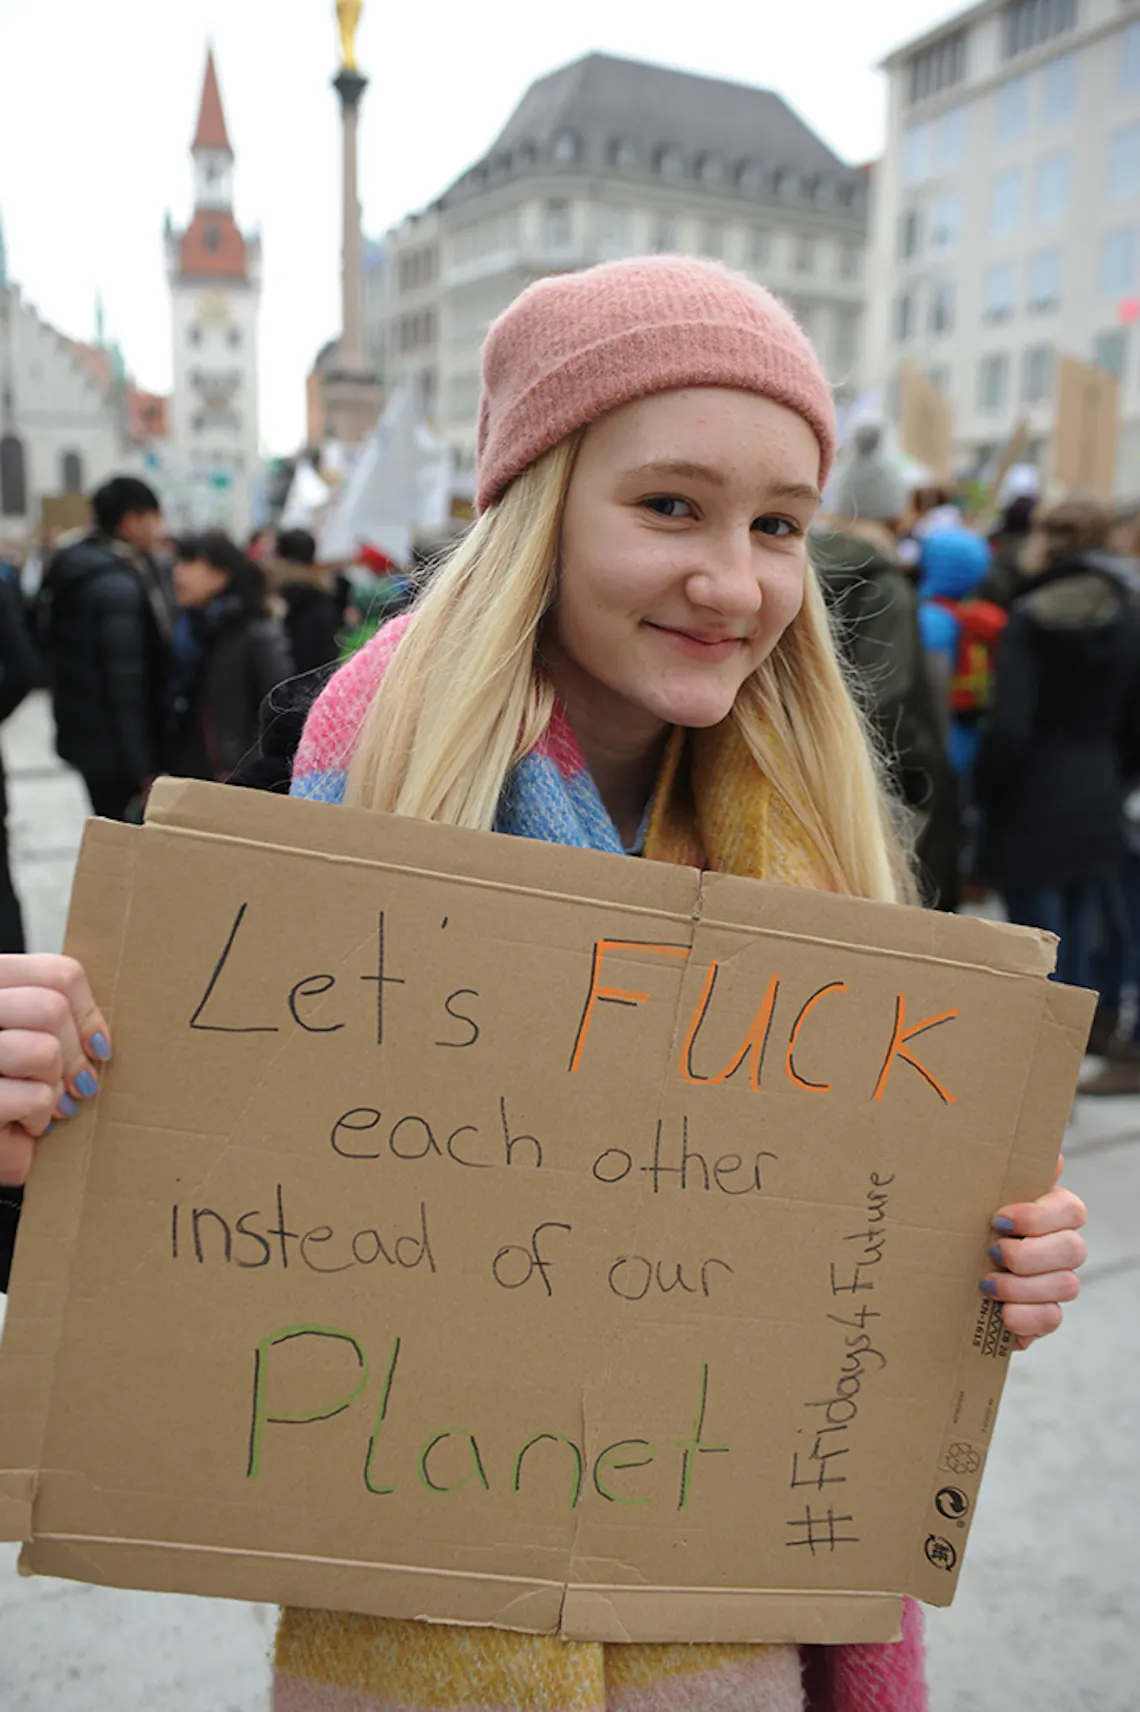 Let's FUCK
each other
instead of our
Planet
#Fridays4Future